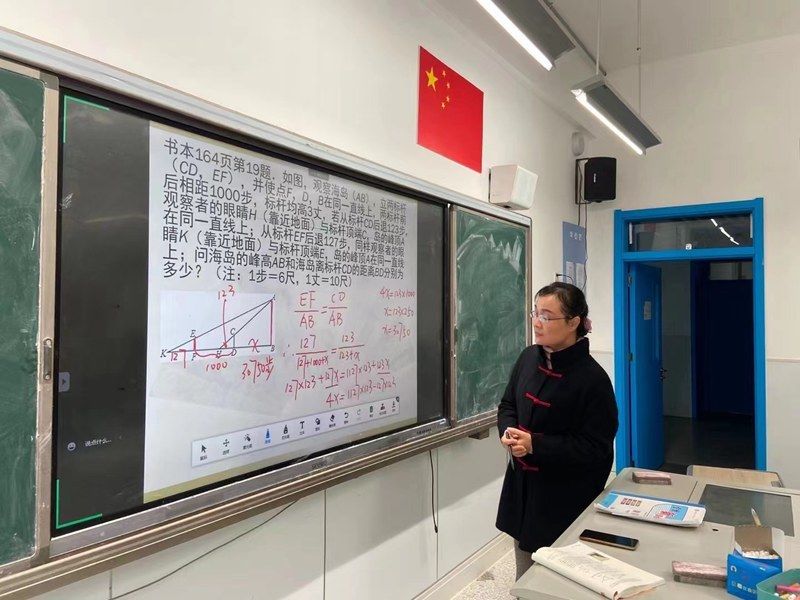 书本164页第19题．如图，观察海岛（AB），立两标杆
（CD，EF），并使点F，D，B在同一直线上，两标杆前
后相距1000步，标杆均高3丈，若从标杆CD后退123步，
观察者的眼睛H（靠近地面）与标杆顶端C、岛的峰顶A
在同一直线上；从标杆EF后退127步，同样观察者的眼
睛K（靠近地面）与标杆顶端E、岛的峰顶A在同一直线
上；问海岛的峰高AB和海岛离标杆CD的距离BD分别为
多少？（注：1步＝6尺，1丈＝10尺）
123
E
C
K
F
H
D
x
B
127
1000
30750步
EF/AB = CD/AB
∴ 127/(127+1000+x) = 123/(123+x)
127×123+127x=1127×123+123x
4x=1127×123-127×123
4x=123×1000
x=123×250
x=30750
说点什么...